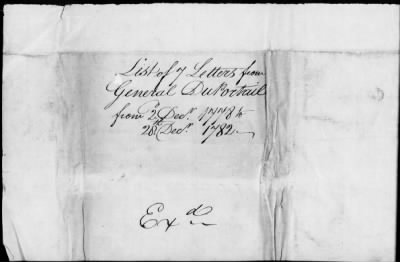 List of 7 Letters from
General DuPortail
from 2d Decr. 1778 to
28th Decr. 1782
Exd